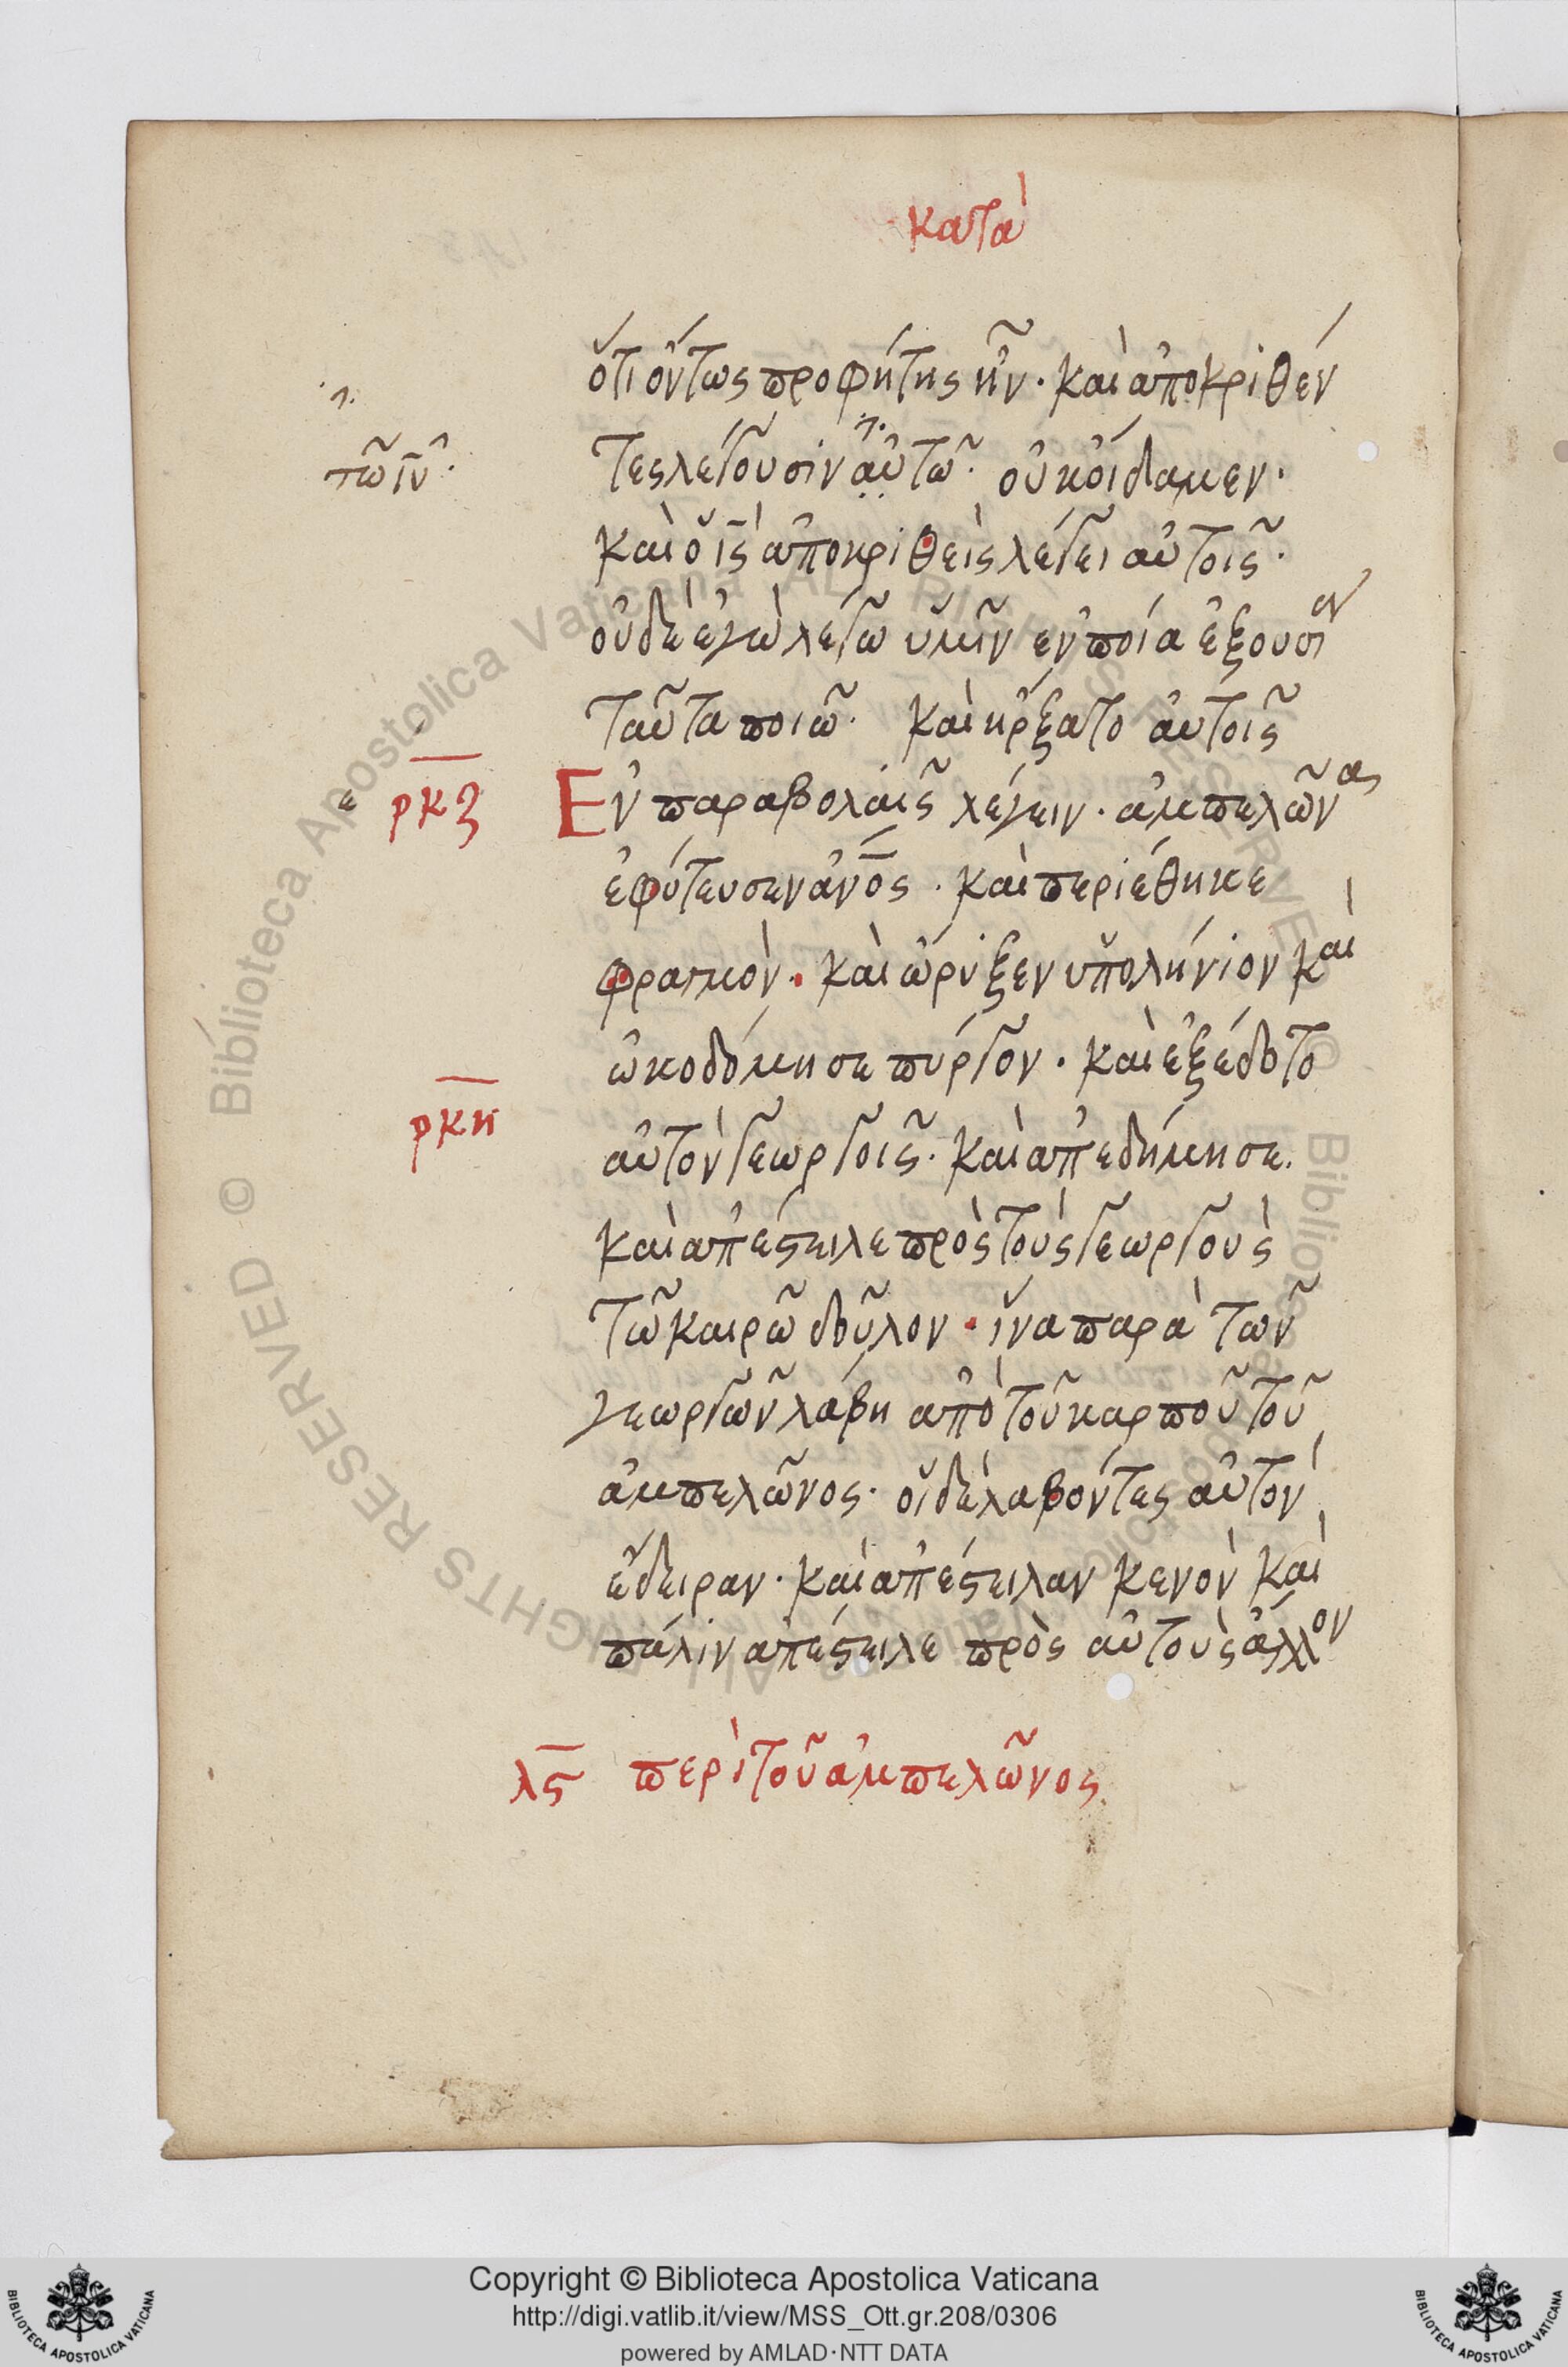 κατὰ
ὅτι ὄντως προφήτης ἦν· καὶ ἀποκριθέν
τες λέγουσιν αὐτῶ· οὐκ οἴδαμεν·
τῶ ιυ̅·
καὶ ὁ ις̅ ἀποκριθεὶς λέγει αὐτοῖς·
οὐδὲ ἐγὼ λέγω ὑμῖν ἐν ποία ἐξουσίαν
ταῦτα ποιῶ· καὶ ἤρξατο αὐτοῖς
ρκζ Ἐν παραβολαῖς λέγειν· ἀμπελῶνας
ἐφύτευσεν ἄνο̅ς· καὶ περιέθηκε
φραγμὸν· καὶ ὤρυξεν ὑπολήνιον καὶ
ὠκοδόμησε πύργον· καὶ ἐξέδοτο
ρκη αὐτὸν γεωργοῖς· καὶ ἀπεδήμησε.
καὶ ἀπέστειλε πρὸς τοὺς γεωργοὺς
τῶ καιρῶ δοῦλον· ἵνα παρὰ τῶν
γεωργῶν λάβη ἀπὸ τοῦ καρποῦ τοῦ
ἀμπελῶνος· οἱ δὲ λαβόντες αὐτὸν
ἔδειραν· καὶ ἀπέστειλαν κενὸν καὶ
πάλιν ἀπέστειλε πρὸς αὐτοὺς ἄλλον
λς περὶ τοῦ ἀμπελῶνος
© Biblioteca Apostolica Vaticana ALL RIGHTS RESERVED
Copyright © Biblioteca Apostolica Vaticana
http://digi.vatlib.it/view/MSS_Ott.gr.208/0306
powered by AMLAD·NTT DATA
BIBLIOTECA APOSTOLICA VATICANA
BIBLIOTECA APOSTOLICA VATICANA